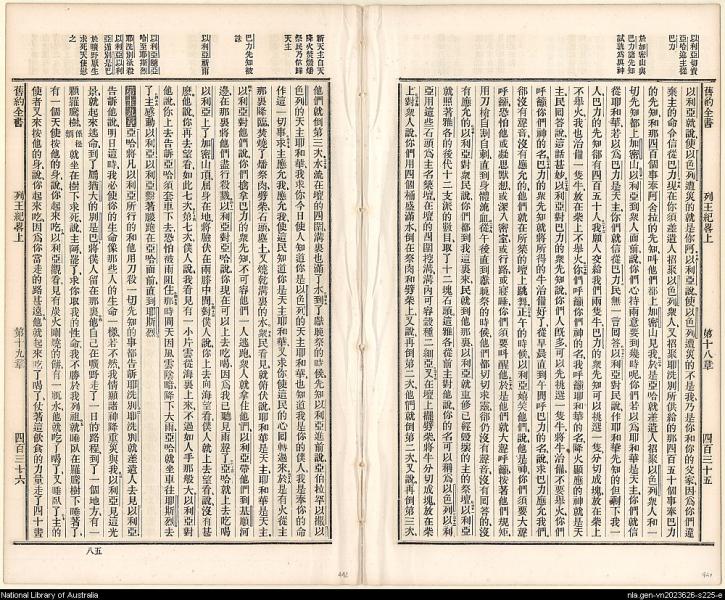 以利亞切責
亞哈遣主從
巴力
於加密山與
巴力諸先知
試孰爲眞神
舊約全書
列王紀畧上
第十八章
四百三十五
以利亞就說使以色列遭災的就是你阿以利亞說使以色列遭災的不是我乃是你和你的父家因爲你們違
棄主的命令信從巴力現在你須差遣人招聚以色列衆人又招聚耶洗別所供給的那四百五十個事奉巴力
的先知和那四百個事奉阿舍拉的先知叫他們都上加密山見我於是亞哈就差遣人招聚以色列衆人和一
切先知都上加密山以利亞到衆人面前說你們心持兩意要到幾時呢你們若以爲耶和華是天主你們就信
從耶和華若以爲巴力是天主你們就信從巴力民無一言回答以利亞對民說作耶和華先知的但剩下我一
人巴力的先知卻有四百五十人我願人交給我們兩隻牛巴力的衆先知可以挑選一隻分切成塊放在柴上
不舉火我也治備一隻牛放在柴上不舉火你們呼籲你們神的名我呼籲耶和華的名降火顯應的神就是天
主民回答說這話甚妙以利亞對巴力的衆先知說你們人既多可以先挑選一隻牛將牛治備不要舉火你們
呼籲你們神的名巴力的衆先知就將所得的牛治備好了從早晨直到午間呼巴力的名說求巴力應允我們
卻沒有聲音沒有應允的他們就在所築的壇上跳舞正午的時候以利亞嬉笑他們說他是神你們須要大聲
呼籲恐怕他或凝思默想或深入密室或行路或寢睡你們須要叫醒他於是他們就大聲呼籲按著他們規矩
用刀槍自割自刺直到身體流血從午後直到獻晚祭的時候他們都切切求籲卻仍沒有聲音沒有回答的沒
有應允的以利亞對衆民說你們都到我這裏來民就到他那裏以利亞就重修已經毀壞的主的祭壇以利亞
就照著雅各的後代十二支派的數目取了十二塊石頭這雅各從前主對他說你的名可以稱爲以色列以利
亞用這些石頭爲主名築壇在壇的四圍挖溝溝內可容穀種二細亞又在壇上擺劈柴將牛分切成塊放在柴
上對衆人說你們用四個桶盛滿水倒在祭肉和劈柴上又說再倒第二次他們就倒第二次又說再倒第三次
主天
祭民乃信耶
降火焚燬燔
主自天
巴力先知被
誅
以利亞祈雨
以利亞隨亞
哈至耶斯烈
耶洗別欲殺
以利亞以利
亞遁別是巴
於曠野居生
求死天使慰
之
他們就倒第三次水流在壇的四圍溝裏也滿了水到了獻晚祭的時候先知以利亞進前說亞伯拉罕以撒以
色列的天主耶和華我求你今日使人知道你是以色列的天主耶和華也知道我是你的僕人我是奉你的命
作這一切事求主應允我應允我使這民知道你是天主耶和華又求你使這民的心回轉過來於是有火從主
那裏降臨焚燒了燔祭肉劈柴石頭塵土又燒乾溝裏的水衆民看見就俯伏說耶和華是天主耶和華是天主
以利亞對他們說你們擒拿巴力的衆先知不可容他們一人逃跑衆人就拿住他們以利亞帶他們到基順河
邊在那裏將他們盡行殺戮以利亞對亞哈說你現在可以上去吃喝因爲我已聽見雨聲了亞哈就上去吃喝
以利亞上了加密山頂屈身在地將臉伏在兩膝中間對僕人說你上去向海觀看僕人就上去望看說沒有甚
麼他說你再去望看如此七次第七次僕人說我看見有一小片雲從海裏上來不過如人手那般大以利亞對
他說你上去告訴亞哈須套車下去恐怕被雨阻住那時間天因風雲陰暗降下大雨亞哈就坐車往耶斯烈去
了主感動以利亞以利亞束著腰跑在亞哈面前直到耶斯烈
第十九章
亞哈將以利亞所行的和他用刀殺一切先知的事都告訴耶洗別耶洗別就差遣人去見以利亞
告訴他說明日這時我必使你的生命像那些人的生命一樣若不然我情願諸神降重災與我以利亞見這光
景就起來逃命到了屬猶大的別是巴將僕人留在那裏他自己在曠野走了一日的路程到了一個地方有一
顆羅騰樹就坐在樹下求死說主阿罷了求你取我的性命我不勝於我列祖就睡臥在羅騰樹下睡著了
有一個天使按他的身說你起來吃以利亞觀看見有炭火燒熟的餅有一瓶水他就吃了喝了又睡臥了主的
使者又來按他的身說你起來吃因爲你當走的路甚遠他就起來吃了喝了仗著這飲食的力量走了四十晝
舊約全書
列王紀畧上
第十九章
四百三十六
八五
National Library of Australia
nla.gen-vn2023626-s225-e